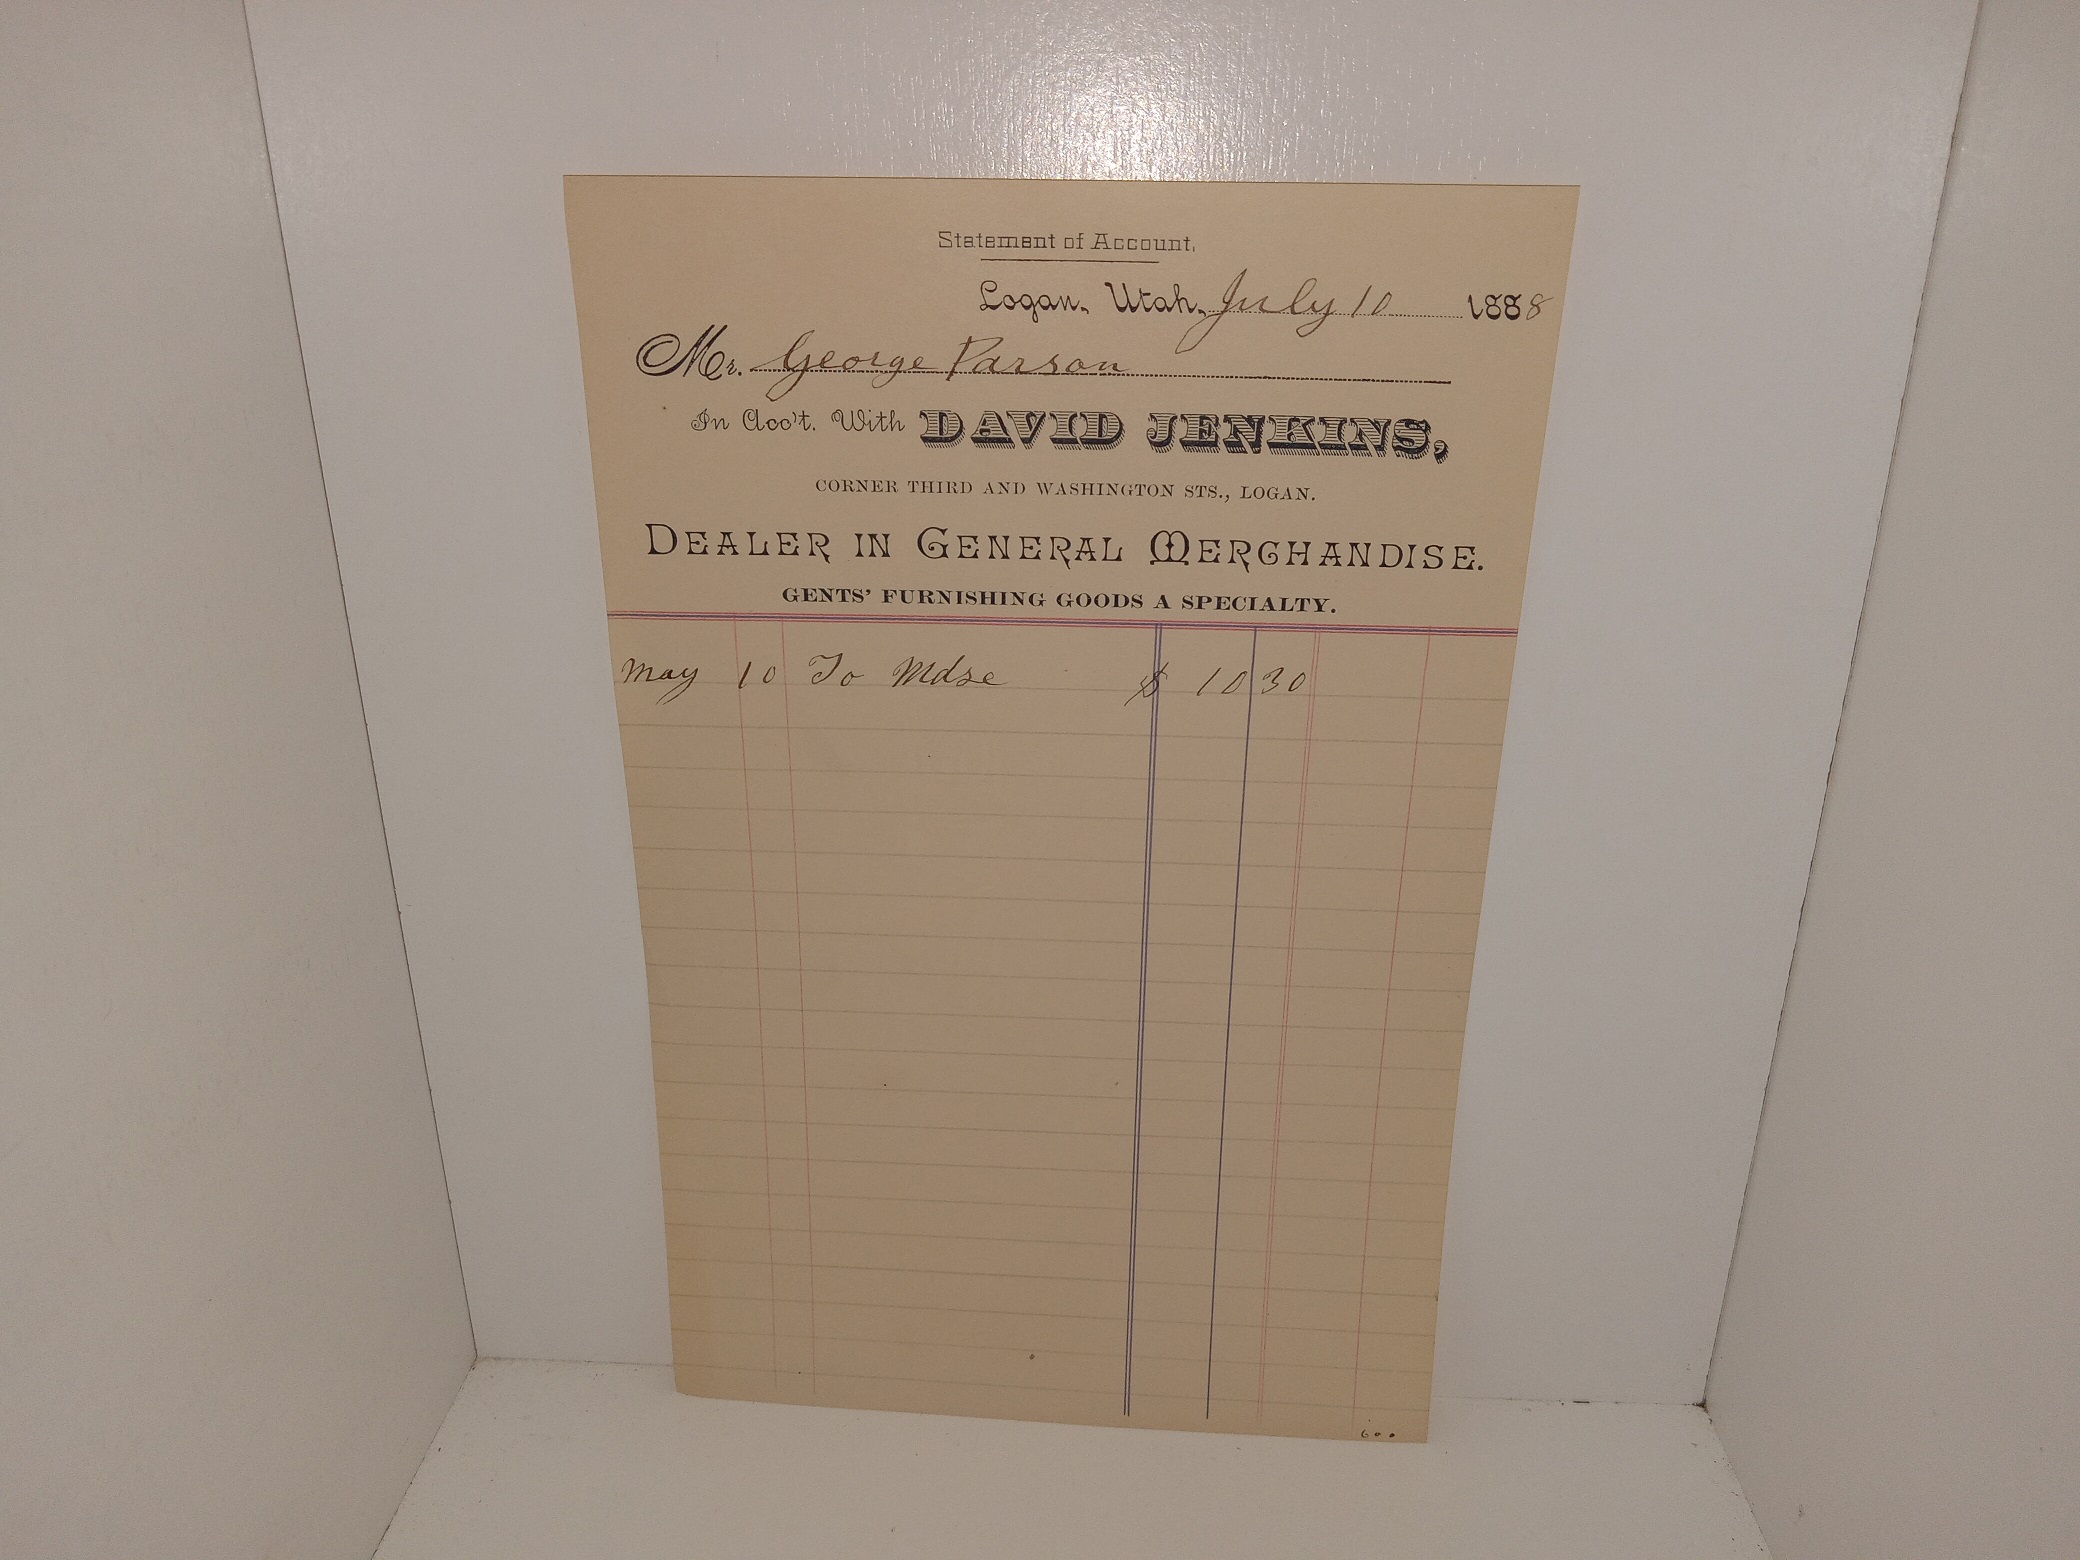 Statement of Account.
Logan, Utah, July 10 1888
Mr. George Parson
In Acc't. With DAVID JENKINS,
CORNER THIRD AND WASHINGTON STS., LOGAN.
DEALER IN GENERAL MERCHANDISE.
GENTS' FURNISHING GOODS A SPECIALTY.
May 10 To Mdse $ 10 30
600